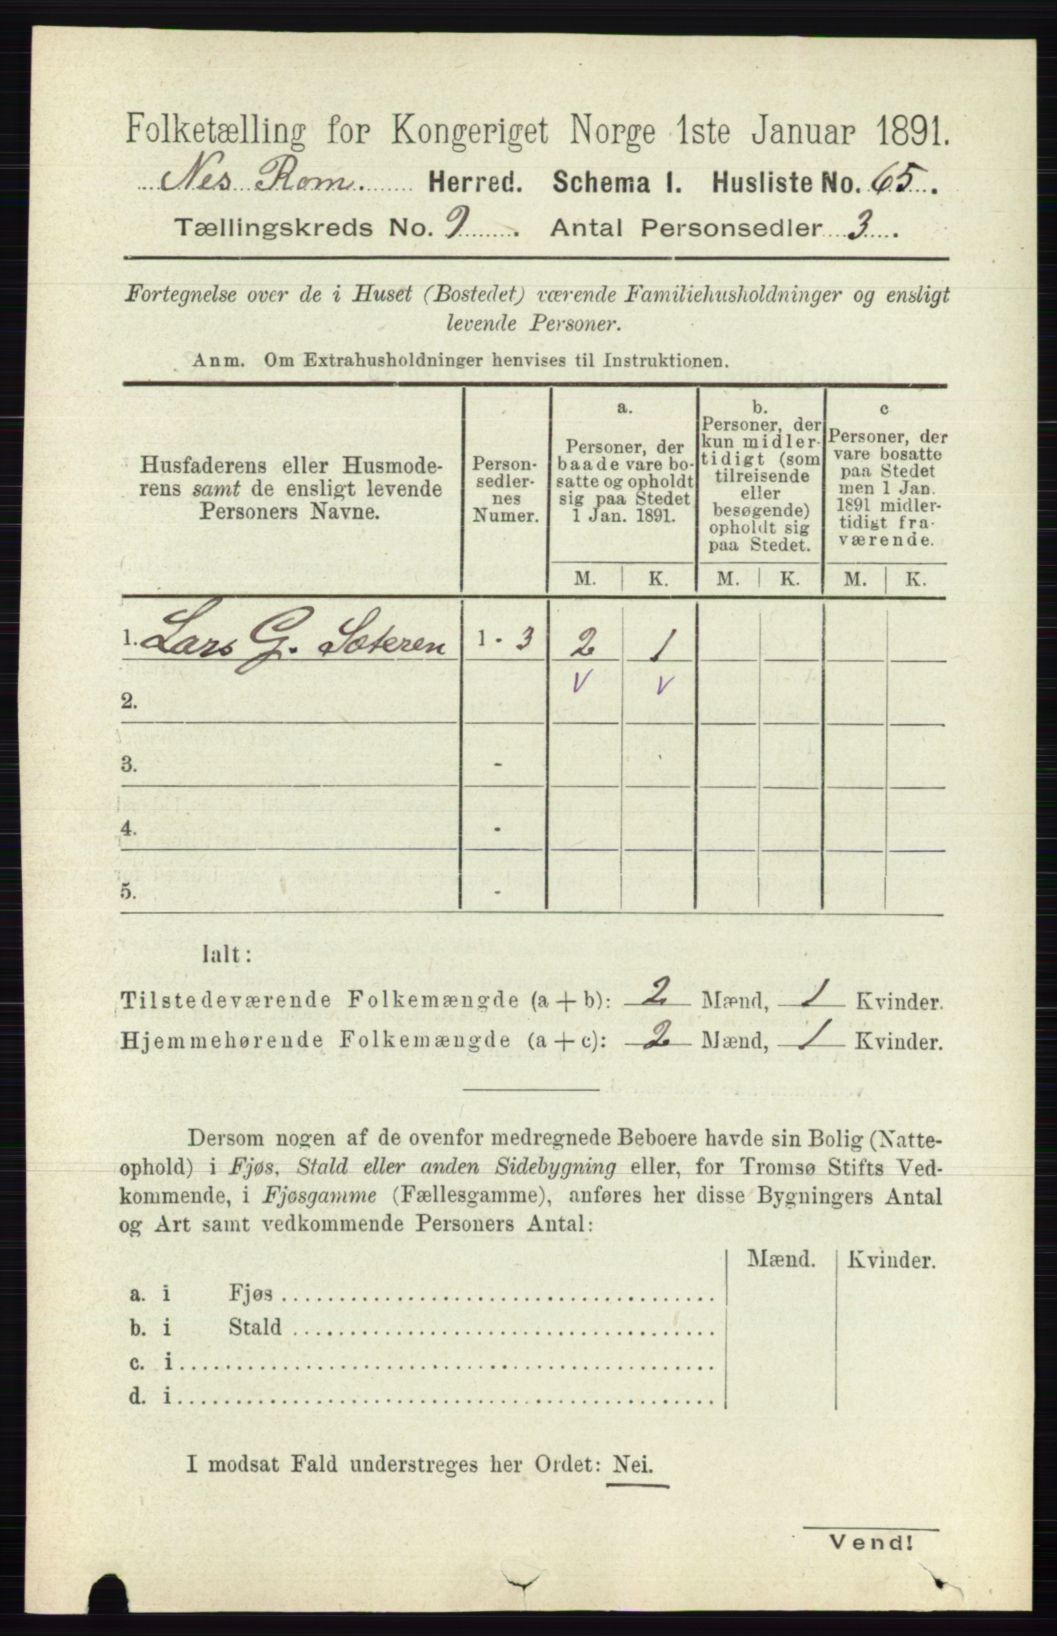 Folketælling for Kongeriget Norge 1ste Januar 1891.
Nes Rom. Herred. Schema I. Husliste No. 65.
Tællingskreds No. 9. Antal Personsedler 3.
Fortegnelse over de i Huset (Bostedet) værende Familiehusholdninger og ensligt
levende Personer.
Anm. Om Extrahusholdninger henvises til Instruktionen.
Husfaderens eller Husmode-
rens samt de ensligt levende
Personers Navne.
Person-
sedler-
nes
Numer.
a.
Personer, der
baade vare bo-
satte og opholdt
sig paa Stedet
1 Jan. 1891.
b.
Personer, der
kun midler-
tidigt (som
tilreisende
eller
besøgende)
opholdt sig
paa Stedet.
c
Personer, der
vare bosatte
paa Stedet
men 1 Jan.
1891 midler-
tidigt fra-
værende.
M. K. M. K. M. K.
1. Lars G. Sæteren 1 - 3 2 1
V V
2.
3. -
4. -
5. -
Ialt:
Tilstedeværende Folkemængde (a + b): 2 Mænd, 1 Kvinder.
Hjemmehørende Folkemængde (a + c): 2 Mænd, 1 Kvinder.
Dersom nogen af de ovenfor medregnede Beboere havde sin Bolig (Natte-
ophold) i Fjøs, Stald eller anden Sidebygning eller, for Tromsø Stifts Ved-
kommende, i Fjøsgamme (Fællesgamme), anføres her disse Bygningers Antal
og Art samt vedkommende Personers Antal:
Mænd. Kvinder.
a. i Fjøs
b. i Stald
c. i
d. i
I modsat Fald understreges her Ordet: Nei.
Vend!